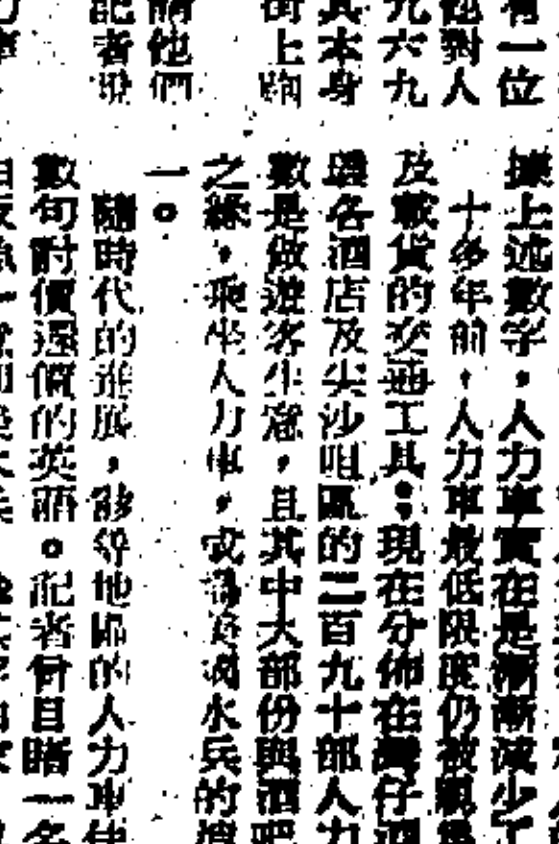 有一位
他對人
九六九
其本身
街上
他們
記者
據上述數字,人力車實在是漸漸減少了
十多年前,人力車最低限度仍被視為
及載貨的交通工具;現在分佈在灣仔酒
各酒店及尖沙咀區的二百九十部人力
數是做遊客生意,且其中大部份與酒吧
之緣,乘坐人力車,或水兵的增
一。
隨時代的進展,等地區的人力車伕
數句討價還價的英語。記者曾目睹一名